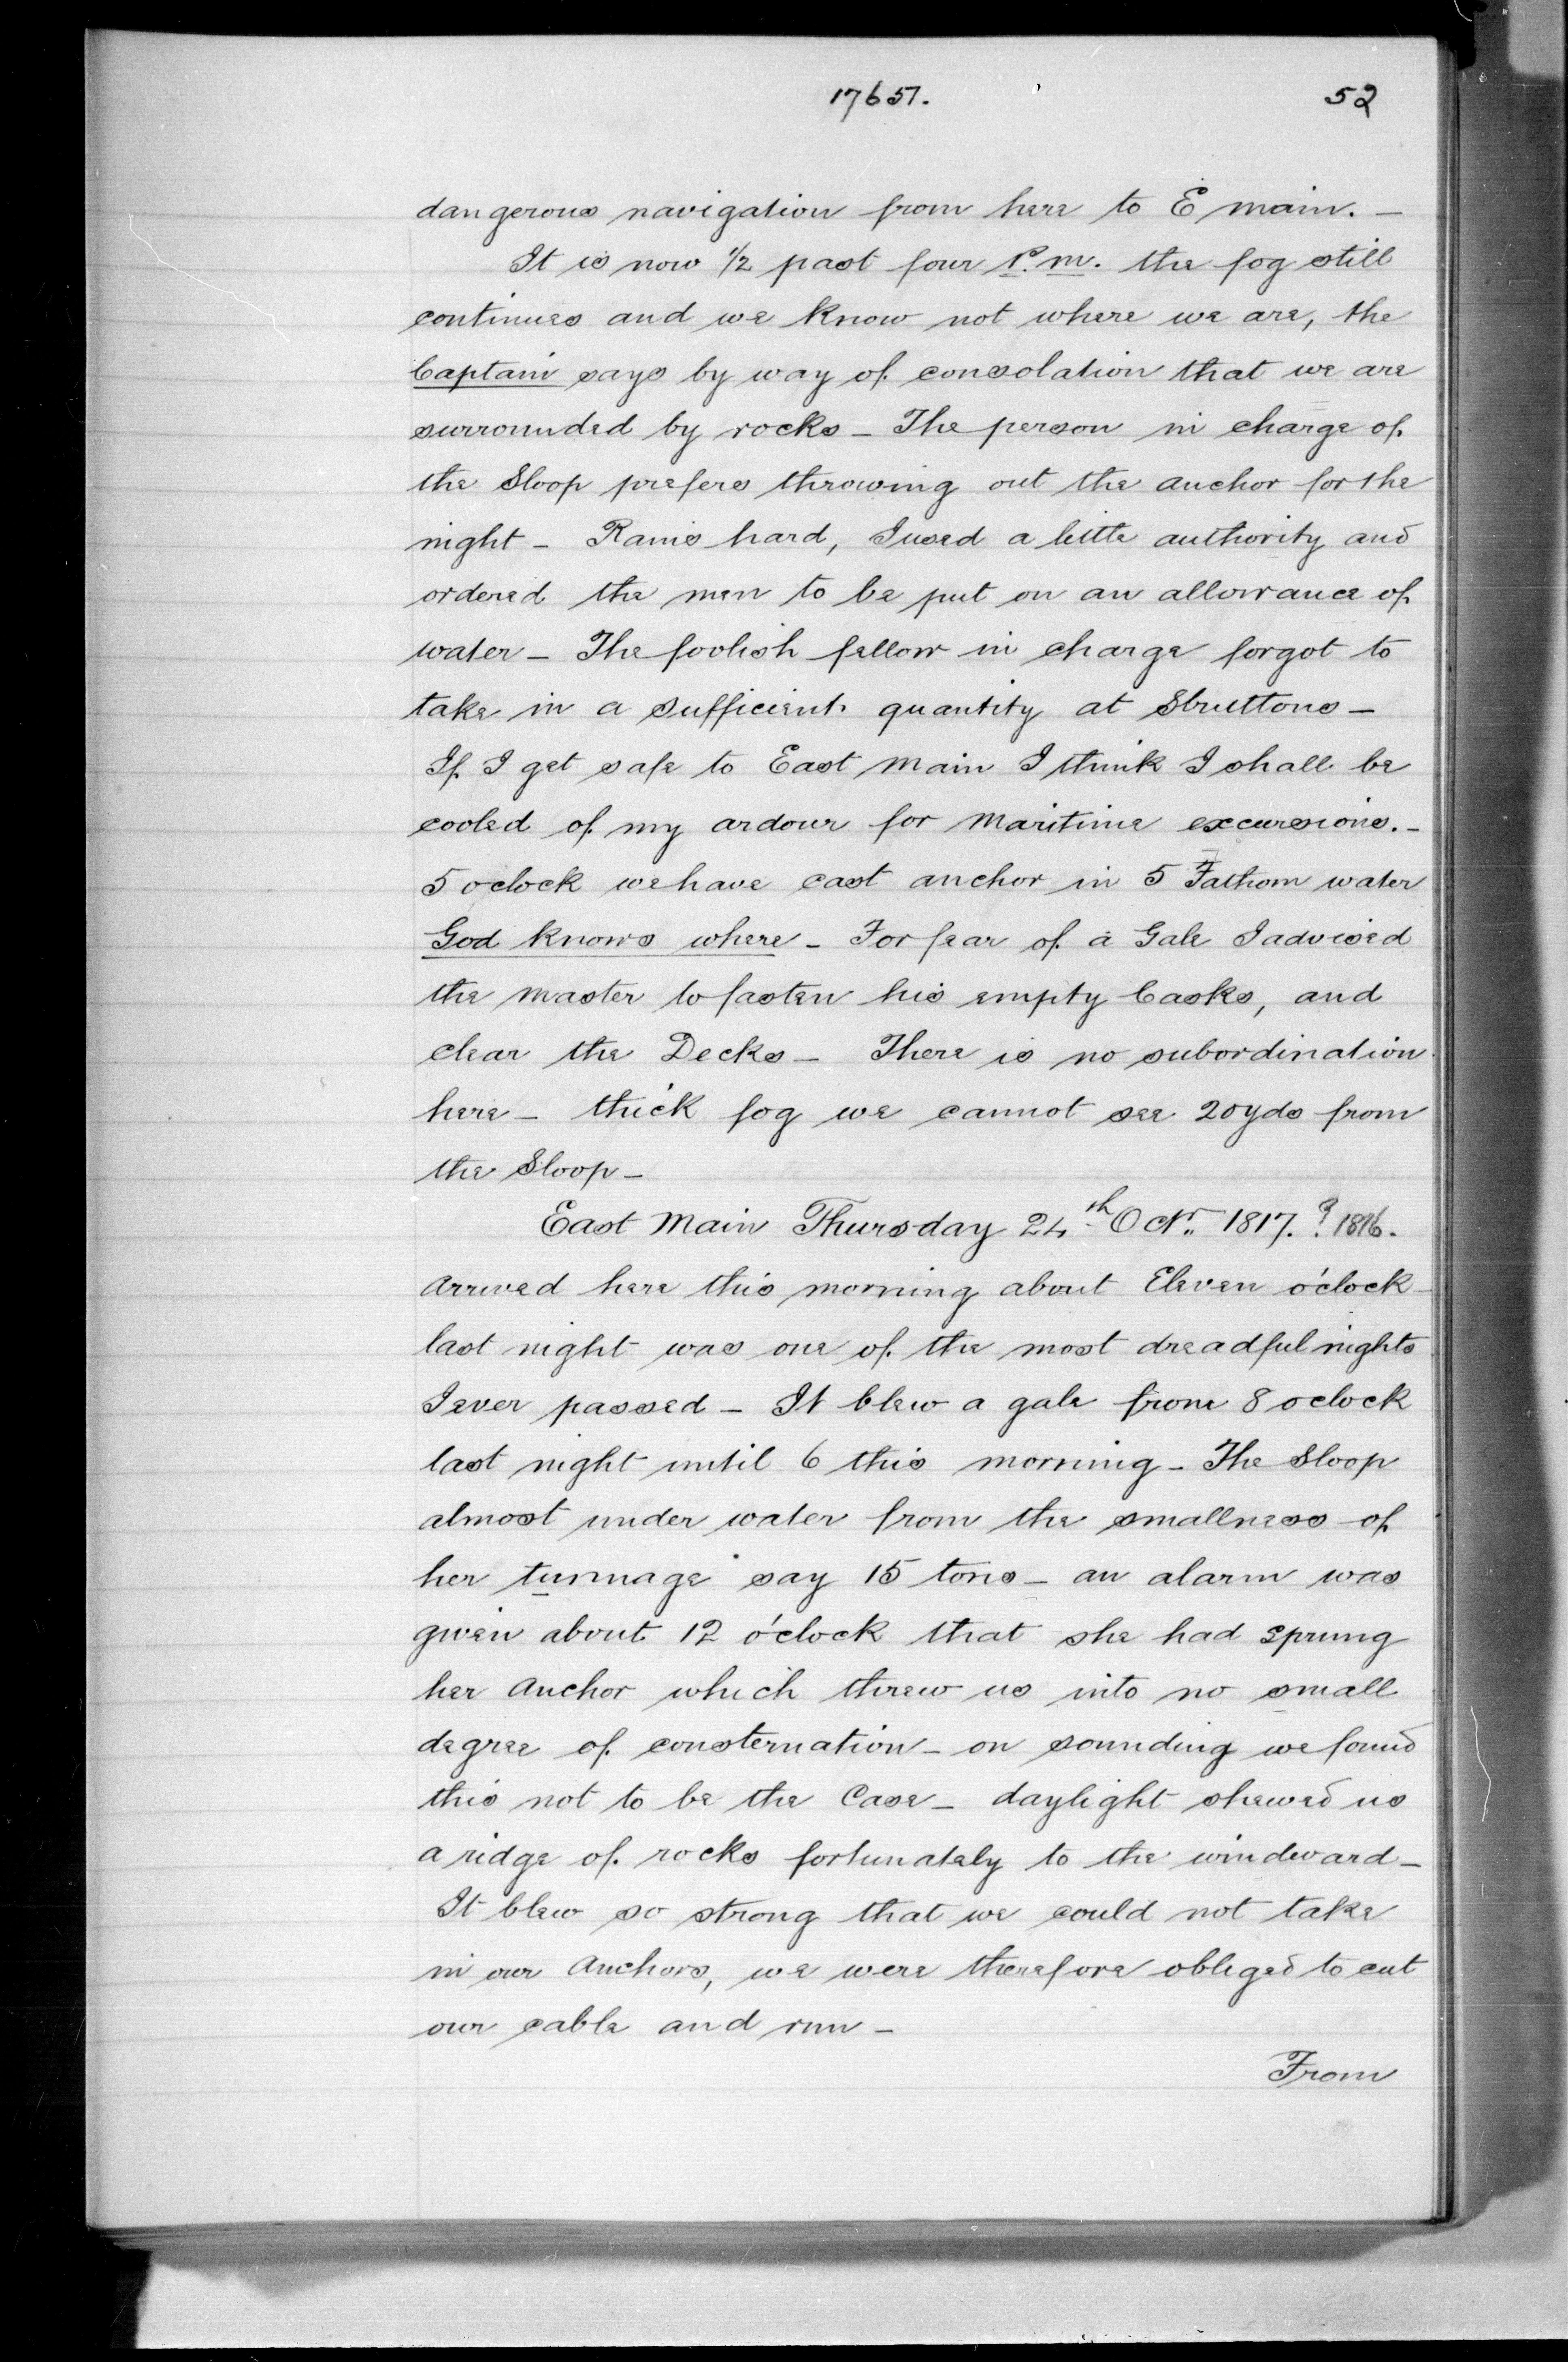 17657. 52
dangerous navigation from here to E main. –
It is now 1/2 past four P.m. the fog still
continues and we know not where we are, the
Captain says by way of consolation that we are
surrounded by rocks – The person in charge of
the Sloop prefers throwing out the anchor for the
night – Rains hard, I used a little authority and
ordered the men to be put on an allowance of
water – The foolish fellow in charge forgot to
take in a sufficient quantity at Struttons –
If I get safe to East Main I think I shall be
cooled of my ardour for Maritime excursions. –
5 oclock we have cast anchor in 5 Fathom water
God knows where – For fear of a Gale I advised
the Master to fasten his empty Casks, and
clear the Decks – There is no subordination
here – thick fog we cannot see 20 yds from
the Sloop –
East Main Thursday 24th Octr. 1817. ? 1816.
Arrived here this morning about Eleven o'clock –
last night was one of the most dreadful nights
I ever passed – It blew a gale from 8 oclock
last night until 6 this morning – The Sloop
almost under water from the smallness of
her tunnage say 15 tons – an alarm was
given about 12 o'clock that she had sprung
her Anchor which threw us into no small
degree of consternation – on sounding we found
this not to be the Case – daylight shewed us
a ridge of rocks fortunately to the windward –
It blew so strong that we could not take
in our Anchors, we were therefore obliged to cut
our cable and run –
From